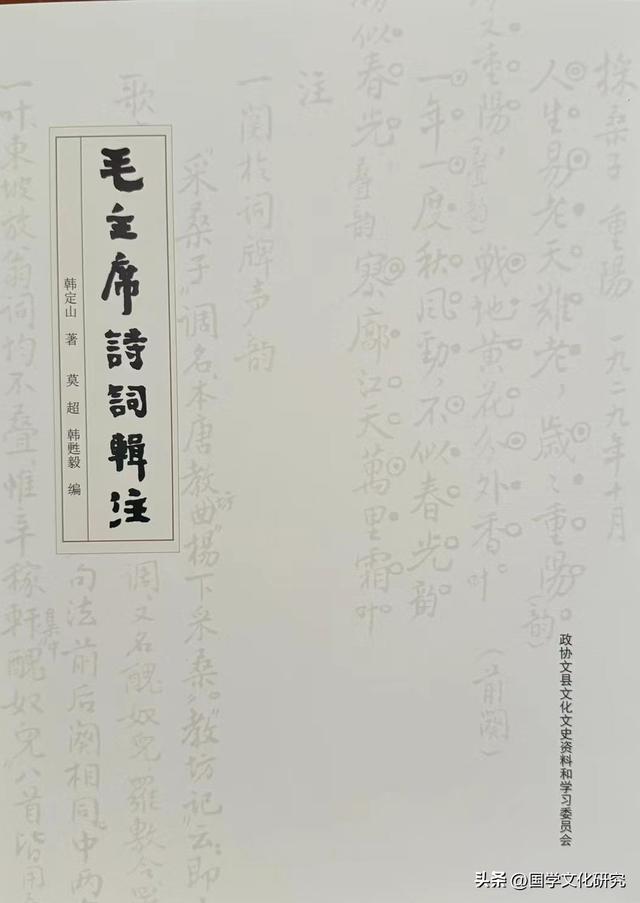 毛主席詩詞輯注
韩定山 著 莫超 韩甦毅 编
政协文县文化文史资料和学习委员会
採桑子 重陽 一九二九年十月
人生易老天難老，歲々重陽。(韵)
今又重陽，(叠韵)戰地黄花分外香。叶 (前阕)
一年一度秋風勁，不似春光。韵
勝似春光。叠韵 寥廓江天萬里霜。叶
注
一関於词牌声韵
“采桑子”调名，本唐教坊曲“楊下采桑。”“教坊记”云：即
歌 调，又名醜奴兒，羅敷令
句法前后阕相同，中两
一叶，東坡放翁词均不叠，惟辛稼軒集中醜奴兒八首皆用
头条 @国学文化研究